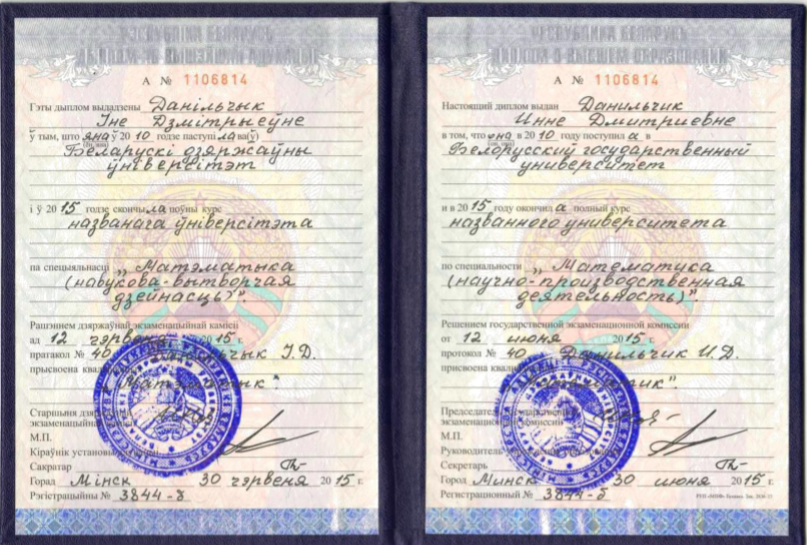 А № 1106814
Гэты дыплом выдадзены Данільчык
Іне Дзмітрыеўне
ў тым, што яна ў 2010 годзе паступіла ва(ў)
Беларускі дзяржаўны
ўніверсітэт
і ў 2015 годзе скончыла поўны курс
названага ўніверсітэта
па спецыяльнасці „Матэматыка
(навукова-вытворчая
дзейнасць)".
Рашэннем дзяржаўнай экзаменацыйнай камісіі
ад 12 чэрвеня 2015 г.
пратакол № 40 Данільчык І.Д.
прысвоена
„Матэматык"
Старшыня
экзаменацыйнай
М.П.
Кіраўнік установы
Сакратар
Горад Мінск 30 чэрвеня 2015 г.
Рэгістрацыйны № 3844-б
А № 1106814
Настоящий диплом выдан Данильчик
Инне Дмитриевне
в том, что она в 2010 году поступила в
Белорусский государственный
университет
и в 2015 году окончила полный курс
названного университета
по специальности „Математика
(научно-производственная
деятельность)".
Решением государственной экзаменационной комиссии
от 12 июня 2015 г.
протокол № 40 Данильчик И.Д.
присвоена
„Математик".
Председатель
экзаменационной комиссии
М.П.
Руководитель
Секретарь
Город Минск 30 июня 2015 г.
Регистрационный № 3844-б